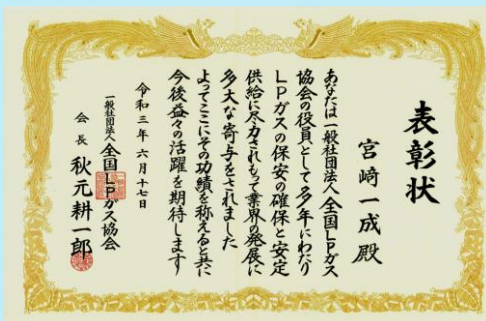 表彰状
宮﨑一成殿
あなたは一般社団法人全国LPガス
協会の役員として多年にわたり
LPガスの保安の確保と安定
供給に尽力されもって業界の発展に
多大な寄与をされました
よってここにその功績を称えると共に
今後益々の活躍を期待します
令和三年六月十七日
一般社団法人全国LPガス協会
会長 秋元耕一郎